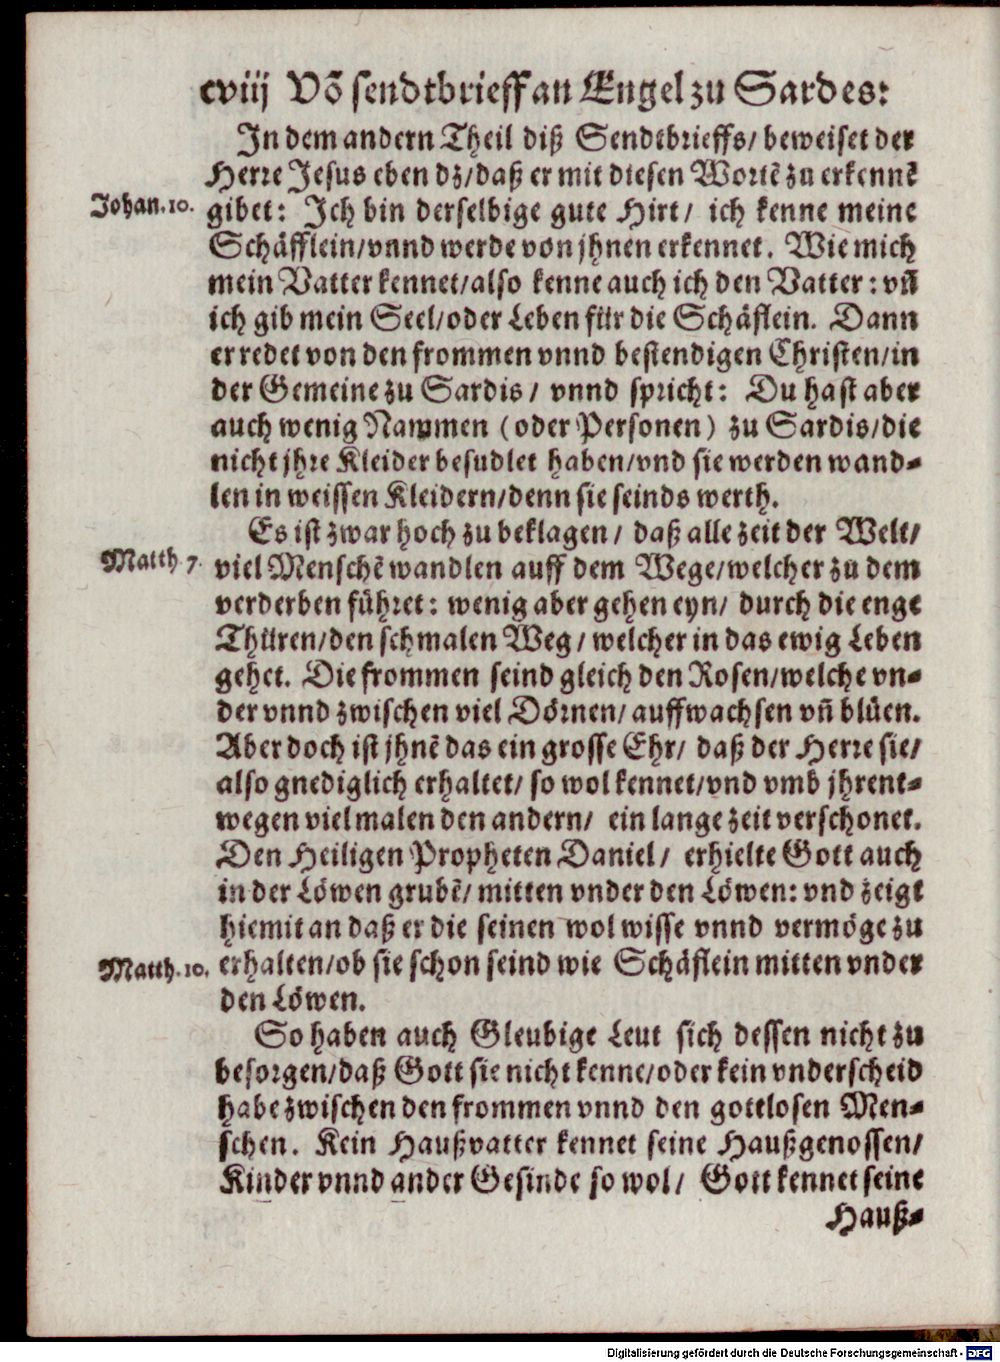 cviij Võ sendtbrieff an Engel zu Sardes:
In dem andern Theil diß Sendtbrieffs/ beweiset der
Herre Jesus eben dz/daß er mit diesen Wortẽ zu erkennẽ
Johan. 10. gibet: Ich bin derselbige gute Hirt/ ich kenne meine
Schäfflein/vnnd werde von jhnen erkennet. Wie mich
mein Vatter kennet/also kenne auch ich den Vatter: vñ
ich gib mein Seel/oder Leben für die Schäflein. Dann
er redet von den frommen vnnd bestendigen Christen/in
der Gemeine zu Sardis/ vnnd spricht: Du hast aber
auch wenig Nammen (oder Personen) zu Sardis/die
nicht jhre Kleider besudlet haben/vnd sie werden wand-
len in weissen Kleidern/denn sie seinds werth.
Es ist zwar hoch zu beklagen/ daß alle zeit der Welt/
Matth 7. viel Menschẽ wandlen auff dem Wege/welcher zu dem
verderben führet: wenig aber gehen eyn/ durch die enge
Thüren/den schmalen Weg/ welcher in das ewig Leben
gehet. Die frommen seind gleich den Rosen/welche vn-
der vnnd zwischen viel Dörnen/ auffwachsen vñ blüen.
Aber doch ist jhnẽ das ein grosse Ehr/ daß der Herre sie/
also gnediglich erhaltet/ so wol kennet/vnd vmb jhrent-
wegen vielmalen den andern/ ein lange zeit verschonet.
Den Heiligen Propheten Daniel/ erhielte Gott auch
in der Löwen grubẽ/ mitten vnder den Löwen: vnd zeigt
hiemit an daß er die seinen wol wisse vnnd vermöge zu
Matth. 10. erhalten/ob sie schon seind wie Schäflein mitten vnder
den Löwen.
So haben auch Gleubige Leut sich dessen nicht zu
besorgen/daß Gott sie nicht kenne/oder kein vnderscheid
habe zwischen den frommen vnnd den gottlosen Men-
schen. Kein Haußvatter kennet seine Haußgenossen/
Kinder vnnd ander Gesinde so wol/ Gott kennet seine
Hauß-
Digitalisierung gefördert durch die Deutsche Forschungsgemeinschaft - DFG